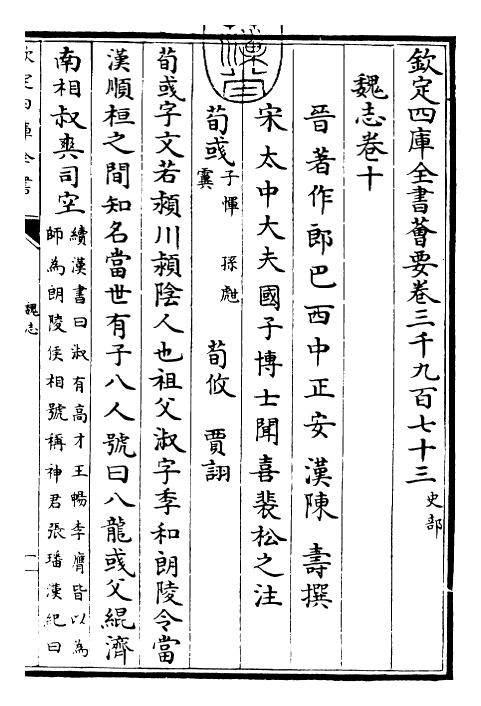 欽定四庫全書薈要卷三千九百七十三史部
魏志卷十
晉著作郎巴西中正安漢陳壽撰
宋太中大夫國子博士聞喜裴松之注
荀彧子惲 孫甝
寓 荀攸 賈詡
荀彧字文若潁川潁陰人也祖父淑字季和朗陵令當
漢順桓之間知名當世有子八人號曰八龍彧父緄濟
南相叔爽司空續漢書曰淑有高才王暢李膺皆以為
師為朗陵侯相號稱神君張璠漢紀曰
欽定四庫全書
魏志
一